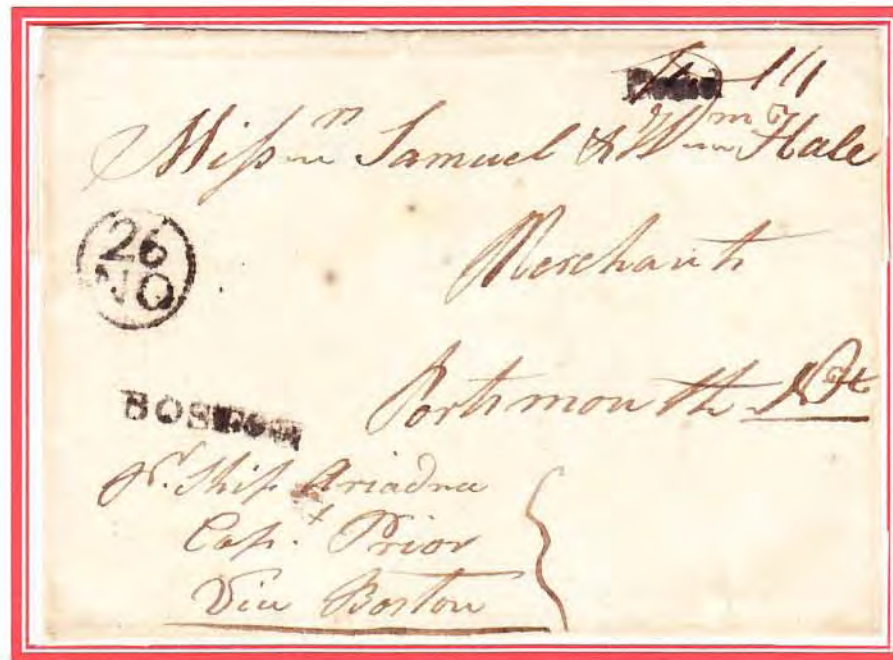 111
Missrs Samuel & Wm Hale
26
NO
Merchants
Portsmouth NH
BOSTON
Pr. Ship Ariadne
Capt. Prior
Via Boston